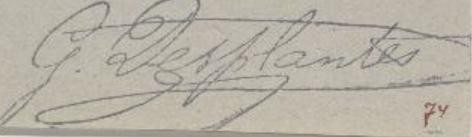 G. Desplantes
74